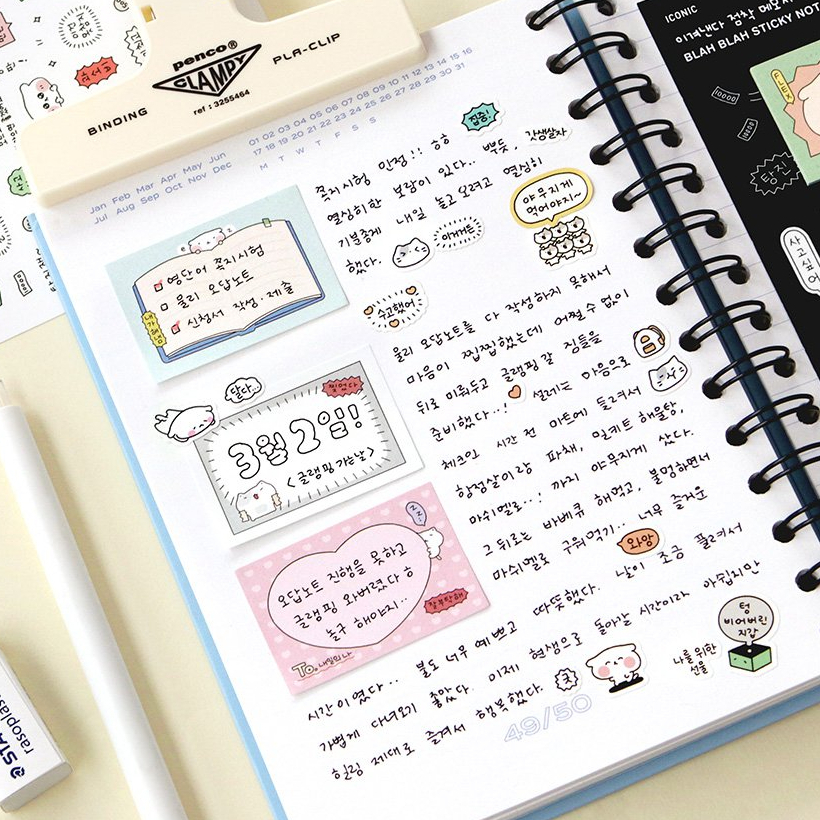 penco®
CLAMPY
BINDING
PLA-CLIP
ref : 3255464
ICONIC
이겨낸다 점착 메모지
BLAH BLAH STICKY NOT
Jan Feb Mar Apr May Jun
Jul Aug Sep Oct Nov Dec
01 02 03 04 05 06 07 08 09 10 11 12 13 14 15 16
17 18 19 20 21 22 23 24 25 26 27 28 29 30 31
M T W T F S S
집중!
쪽지시험 만점!! ㅎㅎ
갓생살자
열심히한 보람이 있다.. 뿌듯, 열심히
기분좋게 내일 놀고 오려고
했다.
야무지게
먹어야지~
영단어 쪽지시험
물리 오답노트
신청서 작성·제출
내가해냄
수고했어
물리 오답노트를 다 작성하지 못해서
마음이 찝찝했는데 어쩔 수 없이
뒤로 미뤄두고 글램핑 갈 짐들을
준비했다..! 설레는 마음으로
체크인 시간 전 마트에 들려서
항정살이랑 파채, 밀키트 해물탕,
마쉬멜로..! 까지 야무지게 샀다.
그 뒤로는 바베큐 해먹고, 불멍하면서
마쉬멜로 구워먹기.. 너무 즐거운
달다...
찢었다
3월 2일!
<글램핑 가는날>
오답노트 진행을 못하고
글램핑 와버렸다 ㅎ
놀구 해야지..
잘부탁해
To. 내일의 나
와앙
시간이였다... 불도 너무 예쁘고 따뜻했다. 날이 조금 풀려서
가볍게 다녀오기 좋았다. 이제 현생으로 돌아갈 시간이라 아쉽지만
힐링 제대로 즐겨서 행복했다.
굿
텅
비어버린
지갑
나를 위한
선물
49/50
탕진
FLEX